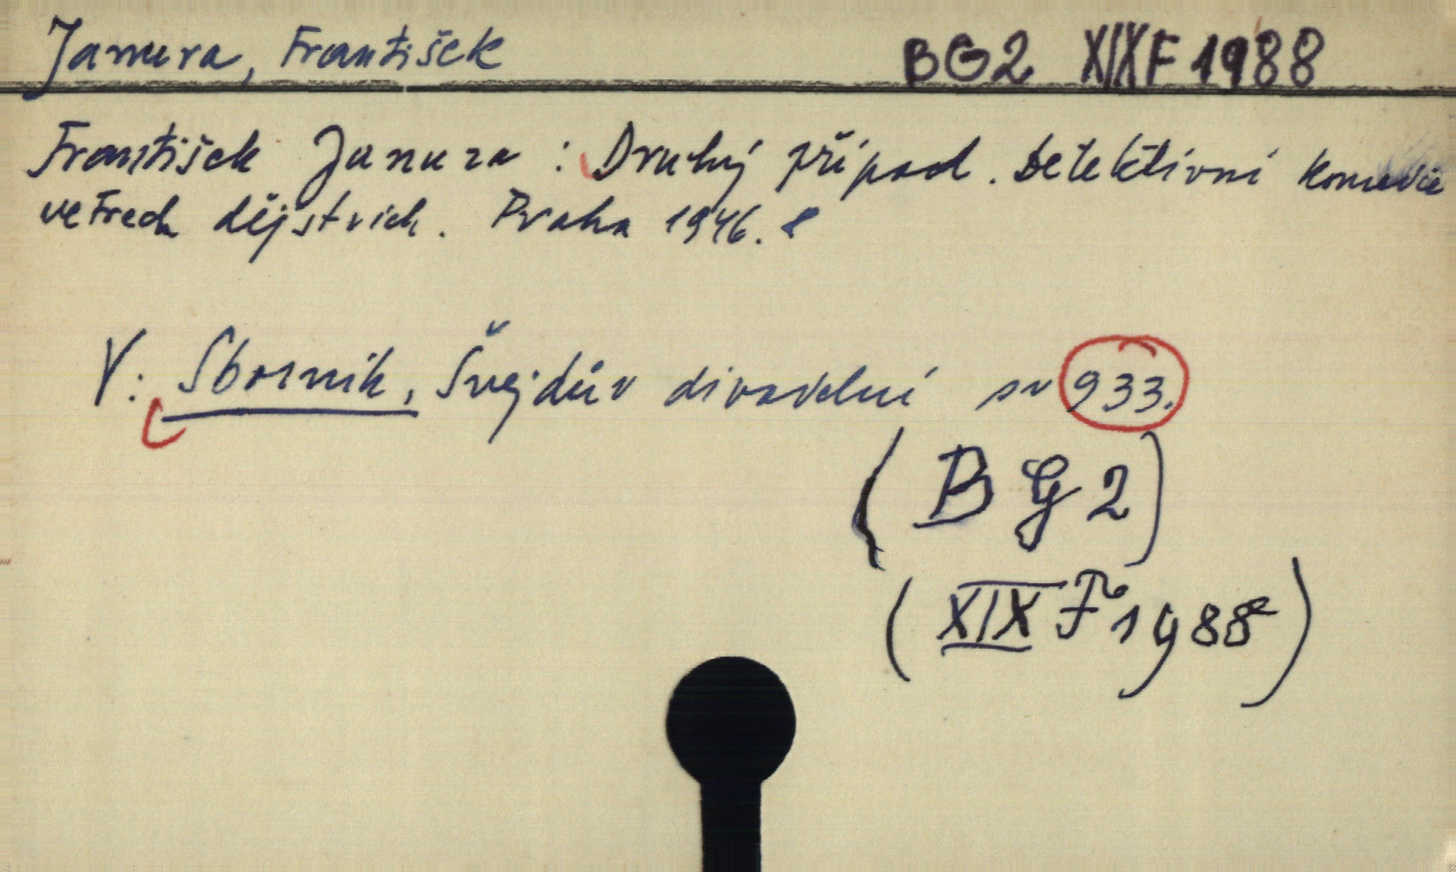 Janura, František BG2 XIXF1988
František Janura: Druhý případ. Detektivní komedie
ve třech dějstvích. Praha 1946.
V: Sborník, Švejdův divadelní sv 933.
(BG2)
(XIXF1988)